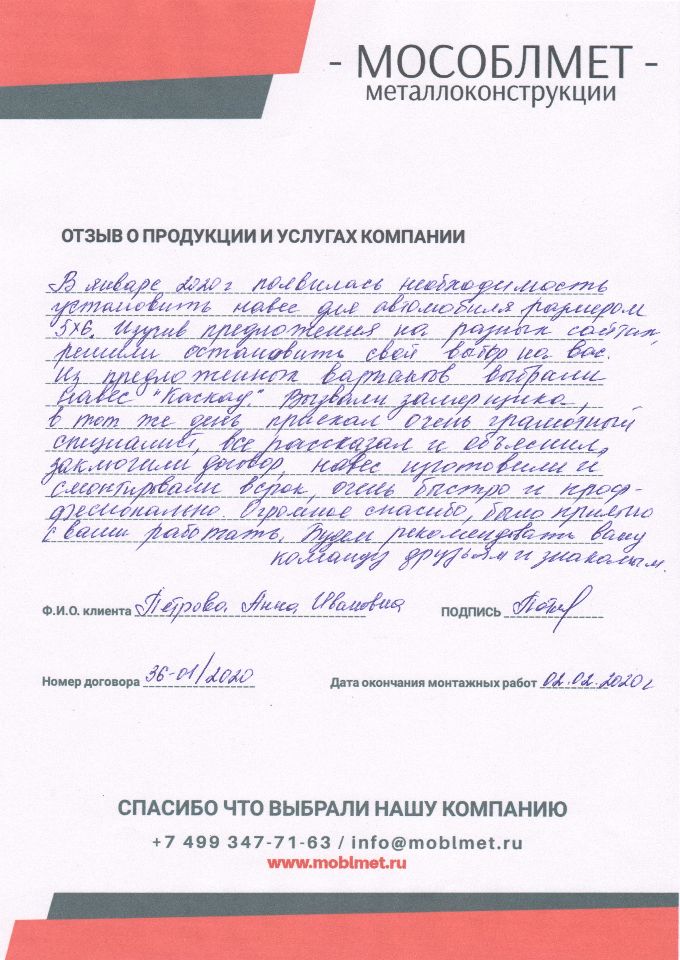 - МОСОБЛМЕТ -
металлоконструкции
ОТЗЫВ О ПРОДУКЦИИ И УСЛУГАХ КОМПАНИИ
В январе 2020 г появилась необходимость
установить навес для автомобиля размером
5х6. Изучив предложения на разных сайтах,
решили остановить свой выбор на вас.
Из предложенных вариантов выбрали
навес "Каскад" Вызвали замерщика,
в тот же день приехал очень грамотный
специалист, все рассказал и объяснил,
заключили договор, навес изготовили и
смонтировали в срок, очень быстро и проф-
фесионально. Огромное спасибо, было приятно
с вами работать. Будем рекомендовать вашу
команду друзьям и знакомым.
Ф.И.О. клиента Петрова Анна Ивановна ПОДПИСЬ
Номер договора 36-01/2020 Дата окончания монтажных работ 02.02.2020 г
СПАСИБО ЧТО ВЫБРАЛИ НАШУ КОМПАНИЮ
+7 499 347-71-63 / info@moblmet.ru
www.moblmet.ru